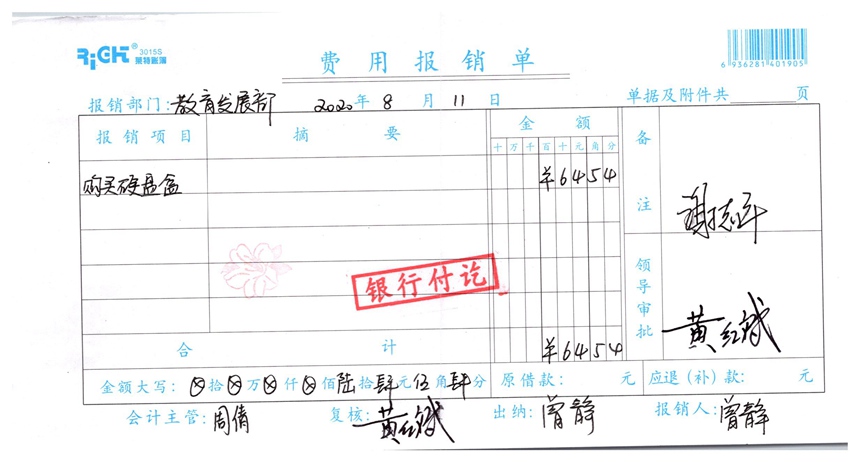 RiGHT 3015S 莱特画簿
费用报销单
6 936281 401905
报销部门：教育发展部 2020年8月11日 单据及附件共 页
报销项目 摘要 金额 备注
十万千百十元角分
购买硬盘盒 ¥6454
谢志军
银行付讫
领导审批 黄红斌
合计 ¥6454
金额大写：⊗拾⊗万⊗仟⊗佰陆拾肆元伍角肆分 原借款： 元 应退（补）款： 元
会计主管：周倩 复核：黄红斌 出纳：曾静 报销人：曾静